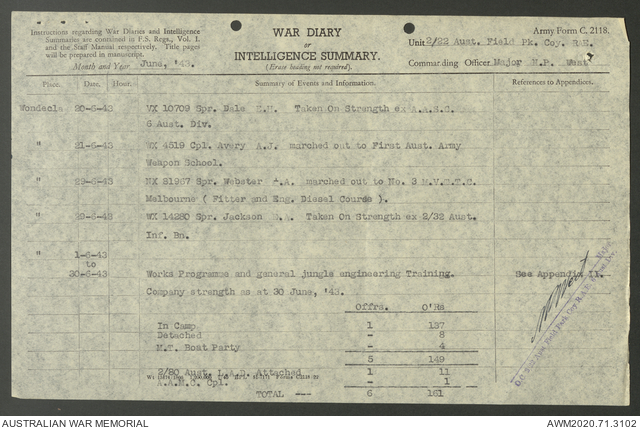 Instructions regarding War Diaries and Intelligence
Summaries are contained in F.S. Regs., Vol. I.
and the Staff Manual respectively. Title pages
will be prepared in manuscript.
Month and Year June, '43.
WAR DIARY
or
INTELLIGENCE SUMMARY.
(Erase heading not required).
Army Form C. 2118.
Unit 2/22 Aust. Field Pk. Coy. RAE.
Commanding Officer Major M.P. West
Place. Date. Hour. Summary of Events and Information. References to Appendices.
Wondecla 20-6-43 VX 10709 Spr. Dale E.H. Taken On Strength ex A.A.S.C.
6 Aust. Div.
" 21-6-43 VX 4519 Cpl. Avery A.J. marched out to First Aust. Army
Weapon School.
" 29-6-43 NX 81967 Spr. Webster A.A. marched out to No. 3 M.V.C.T.C.
Melbourne ( Fitter and Eng. Diesel Course ).
" 29-6-43 WX 14280 Spr. Jackson Taken On Strength ex 2/32 Aust.
Inf. Bn.
" 1-6-43
to
30-6-43 Works Programme and general jungle engineering Training. See Appendix 11.
Company strength as at 30 June, '43.
Offrs. O'Rs
In Camp 1 137
Detached - 8
M.T. Boat Party - 4
5 149
2/80 Aust. L.A.D. Attached 1 11
A.A.M.C. Cpl. - 1
TOTAL --- 6 161
Major
O.C. 2/22 Aust Field Park Coy R.A.E.
AUSTRALIAN WAR MEMORIAL AWM2020.71.3102